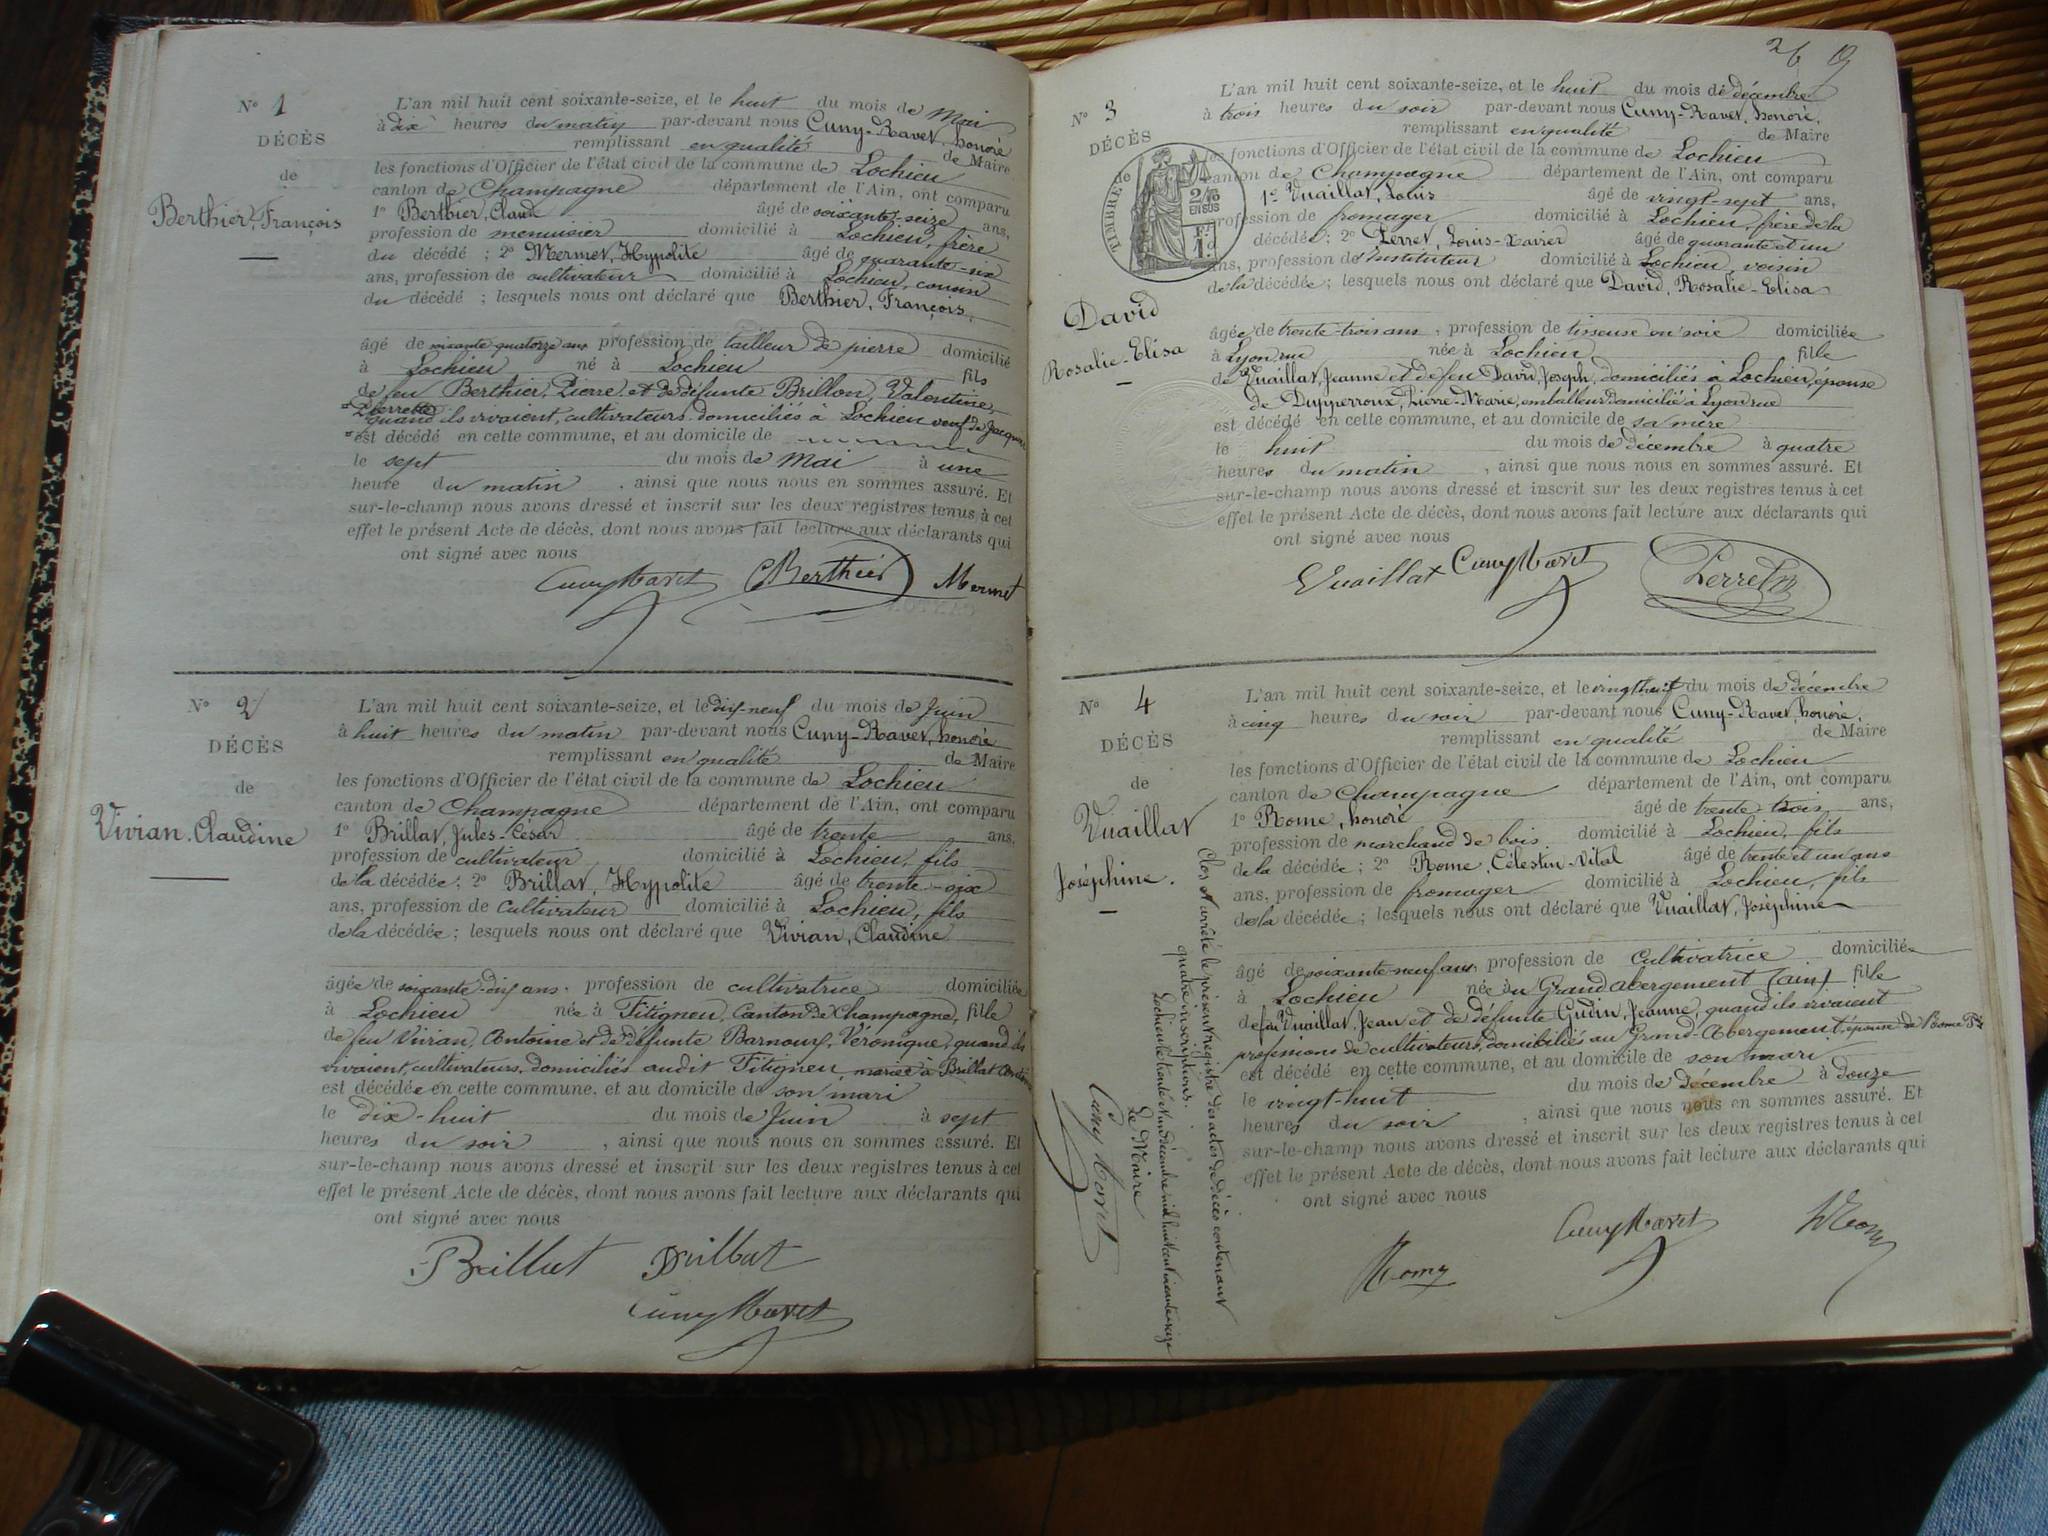 N° 1
DÉCÈS
de
Berthier, François
L'an mil huit cent soixante-seize, et le huit du mois de Mai
à dix heures du matin par-devant nous Cuny-Ravet, honoré
remplissant en qualité de Maire
les fonctions d'Officier de l'état civil de la commune de Lochieu
canton de Champagne département de l'Ain, ont comparu
1° Berthier, Claude âgé de soixante-seize ans,
profession de menuisier domicilié à Lochieu, frère
du décédé ; 2° Mermet, Hypolite âgé de quarante-six
ans, profession de cultivateur domicilié à Lochieu, cousin
du décédé ; lesquels nous ont déclaré que Berthier, François,
âgé de soixante quatorze ans profession de tailleur de pierre domicilié
à Lochieu né à Lochieu fils
de feu Berthier, Pierre, et de défunte Brillon, Valentine,
quand ils vivaient, cultivateurs domiciliés à Lochieu veuf de
est décédé en cette commune, et au domicile de
le sept du mois de Mai à une
heure du matin, ainsi que nous nous en sommes assuré. Et
sur-le-champ nous avons dressé et inscrit sur les deux registres tenus à cet
effet le présent Acte de décès, dont nous avons fait lecture aux déclarants qui
ont signé avec nous
Cuny Ravet CBerthier Mermet
N° 2
DÉCÈS
de
Vivian, Claudine
L'an mil huit cent soixante-seize, et le dix-neuf du mois de Juin
à huit heures du matin par-devant nous Cuny-Ravet, honoré
remplissant en qualité de Maire
les fonctions d'Officier de l'état civil de la commune de Lochieu
canton de Champagne département de l'Ain, ont comparu
1° Brillat, Jules-César âgé de trente ans,
profession de cultivateur domicilié à Lochieu, fils
de la décédée ; 2° Brillat, Hypolite âgé de trente-six
ans, profession de cultivateur domicilié à Lochieu, fils
de la décédée ; lesquels nous ont déclaré que Vivian, Claudine
âgée de soixante-dix ans, profession de cultivatrice domiciliée
à Lochieu née à Fitigneu, Canton de Champagne, fille
de feu Vivian, Antoine et de défunte Barnoux, Véronique, quand ils
vivaient, cultivateurs, domiciliés audit Fitigneu, mariée à Brillat
est décédée en cette commune, et au domicile de son mari
le dix-huit du mois de Juin à sept
heures du soir, ainsi que nous nous en sommes assuré. Et
sur-le-champ nous avons dressé et inscrit sur les deux registres tenus à cet
effet le présent Acte de décès, dont nous avons fait lecture aux déclarants qui
ont signé avec nous
Brillat Brillat
Cuny Ravet
26
N° 3
DÉCÈS
de
TIMBRE
2/10
EN SUS
David
Rosalie-Elisa
L'an mil huit cent soixante-seize, et le huit du mois de décembre
à trois heures du soir par-devant nous Cuny-Ravet, honoré,
remplissant en qualité de Maire
les fonctions d'Officier de l'état civil de la commune de Lochieu
canton de Champagne département de l'Ain, ont comparu
1° Vuaillat, Louis âgé de vingt-sept ans,
profession de fromager domicilié à Lochieu, frère de la
décédée ; 2° Perret, Louis-Xavier âgé de quarante et un
ans, profession d'Instituteur domicilié à Lochieu, voisin
de la décédée ; lesquels nous ont déclaré que David, Rosalie-Elisa
âgée de trente-trois ans, profession de tisseuse en soie domiciliée
à Lyon rue née à Lochieu, fille
de Vuaillat, Jeanne et de feu David, Joseph, domiciliés à Lochieu, épouse
de Dupperroux, Pierre-Marie, emballeur domicilié à Lyon rue
est décédé en cette commune, et au domicile de sa mère
le huit du mois de décembre à quatre
heures du matin, ainsi que nous nous en sommes assuré. Et
sur-le-champ nous avons dressé et inscrit sur les deux registres tenus à cet
effet le présent Acte de décès, dont nous avons fait lecture aux déclarants qui
ont signé avec nous
Vuaillat Cuny Ravet Perret
N° 4
DÉCÈS
de
Vuaillat
Joséphine.
L'an mil huit cent soixante-seize, et le vingt huit du mois de décembre
à cinq heures du soir par-devant nous Cuny-Ravet, honoré,
remplissant en qualité de Maire
les fonctions d'Officier de l'état civil de la commune de Lochieu
canton de Champagne département de l'Ain, ont comparu
1° Rome, honoré âgé de trente-trois ans,
profession de marchand de bois domicilié à Lochieu, fils
de la décédée ; 2° Rome, Célestin-Vital âgé de trente et un ans
ans, profession de fromager domicilié à Lochieu, fils
de la décédée ; lesquels nous ont déclaré que Vuaillat, Joséphine
âgé de soixante-neuf ans profession de cultivatrice domiciliée
à Lochieu née au Grand abergement (ain) fille
de feu Vuaillat, Jean et de défunte Gudin, Jeanne, quand ils vivaient
professions de cultivateurs, domiciliés au Grand-Abergement, épouse de Rome
est décédé en cette commune, et au domicile de son mari
le vingt-huit du mois de décembre à douze
heures du soir, ainsi que nous nous en sommes assuré. Et
sur-le-champ nous avons dressé et inscrit sur les deux registres tenus à cet
effet le présent Acte de décès, dont nous avons fait lecture aux déclarants qui
ont signé avec nous
Rome Cuny Ravet
Clos et arrêté le présent registre des actes de décès contenant
quatre inscriptions.
Lochieu le trente et un décembre mil huit cent soixante seize
Le Maire
Cuny Ravet